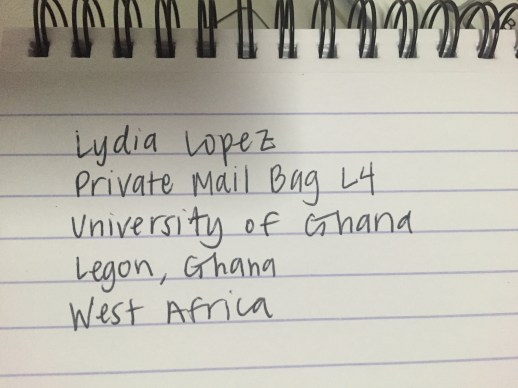 Lydia Lopez
Private Mail Bag L4
University of Ghana
Legon, Ghana
West Africa